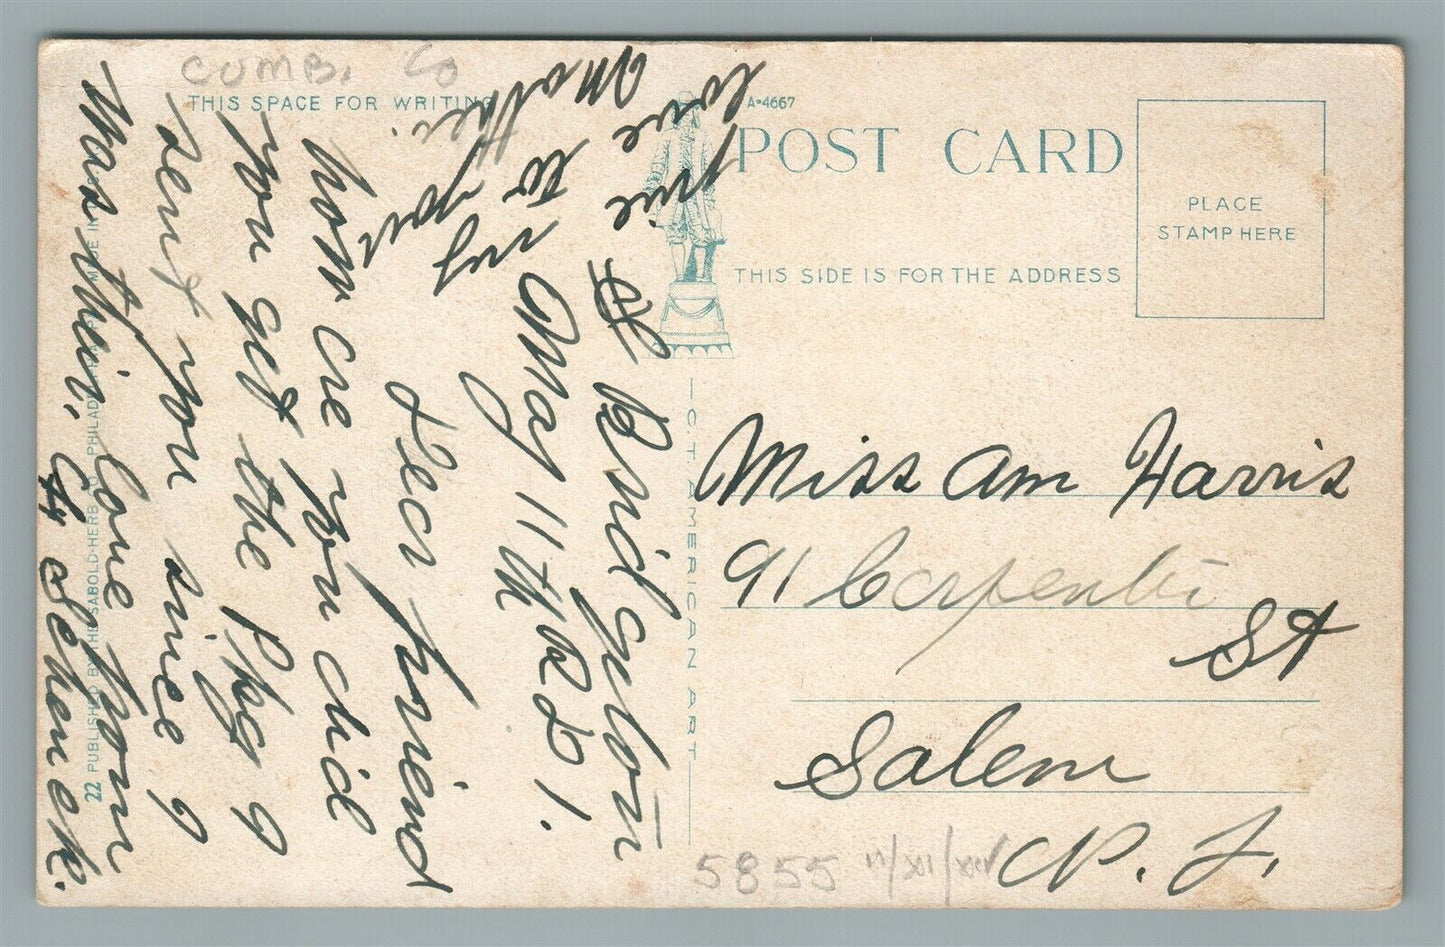 CUMB. Co
THIS SPACE FOR WRITING
A-4667
POST CARD
PLACE
STAMP HERE
THIS SIDE IS FOR THE ADDRESS
C.T. AMERICAN ART
22 PUBLISHED BY THE SABOLD-HERB CO. PHILADELPHIA, PA. MADE IN
Bridgeton
May 11th RD 1.
Dear friend
how are you did
you get the Pkg I
sent you since I
was their. love from
G. Schenck.
give my
love to your
Mother.
Miss Am Harris
91 Carpenter
St
Salem
N. J.
5855